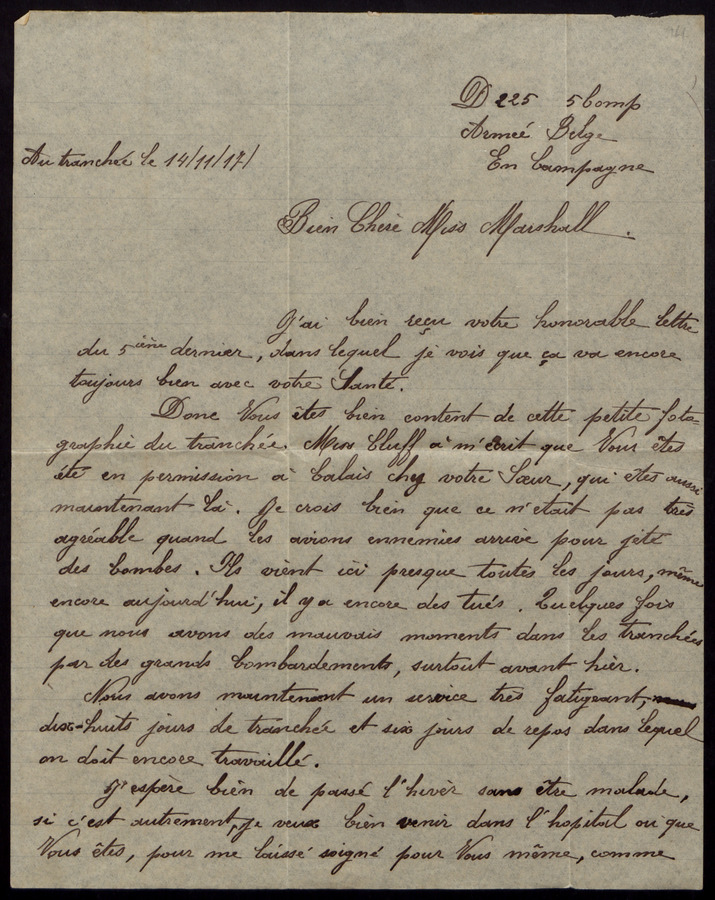 D 225 5 Comp
Armeé Belge
En Campagne
Au tranchée le 14/11/17/
Bien Cherè Miss Marshall.
J'ai bien reçu votre honorable lettre
du 5ième dernier, dans lequel je vois que ça va encore
toujours bien avec votre Santé.
Donc Vous êtes bien content de cette petite foto-
graphie du tranchée. Miss Cluff à m'écrit que Vous êtes
été en permission à Calais chy votre Sœur, qui êtes aussi
maintenant là. Je crois bien que ce n'etait pas très
agréable quand les avions ennemies arrive pour jeté
des bombes. Ils vient ici presque toutes les jours, même
encore aujourd'hui, il y a encore des tués. Quelques fois
que nous avons des mauvais moments dans les tranchées
par des grands bombardements, surtout avant hier.
Nous avons maintenant un service très fatigeant,
dix-huits jours de tranchée et six jours de repos dans lequel
on doit encore travaillé.
J'espère bien de passé l'hivèr sans être malade,
si c'est autrement, je veux bien venir dans l'hopital ou que
Vous êtes, pour me laissé soigné pour Vous même, comme